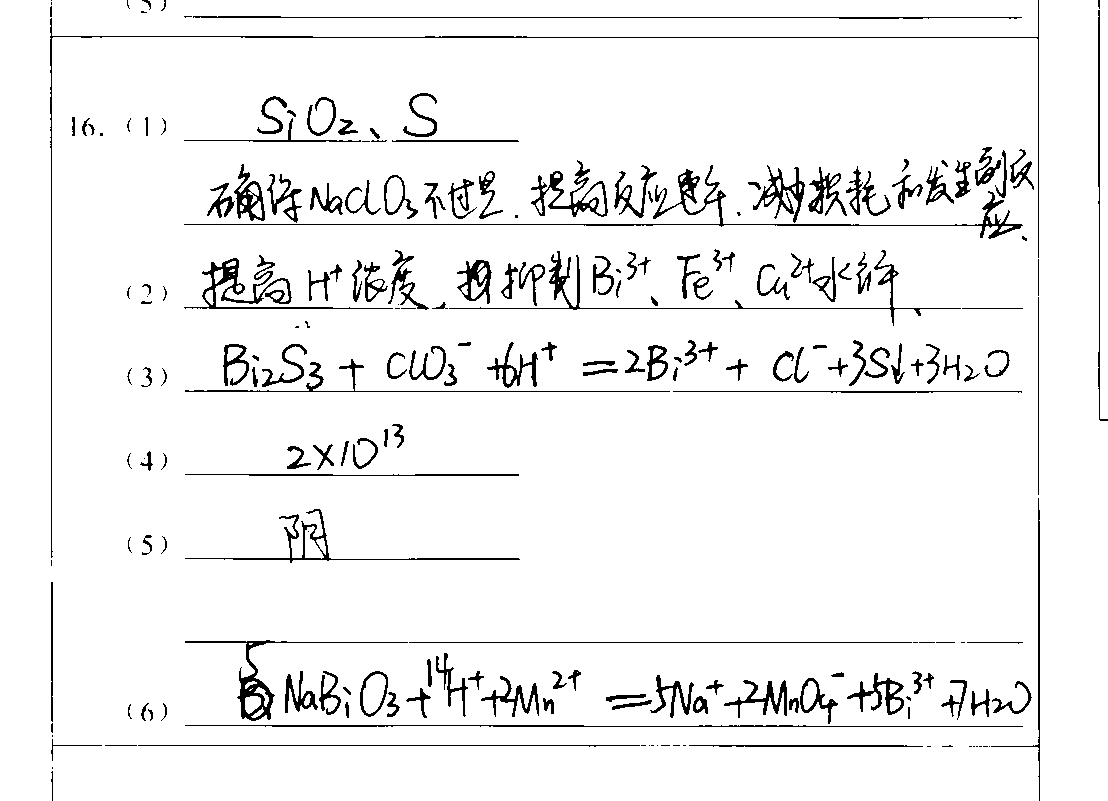 (5)
16. (1) SiO₂、S
确保NaClO₃不过量.提高反应速率.减少损耗和发生副反应、
(2) 提高H⁺浓度,抑制Bi³⁺、Fe³⁺、Cu²⁺水解、
(3) Bi₂S₃ + ClO₃⁻ +6H⁺ = 2Bi³⁺ + Cl⁻ +3S↓+3H₂O
(4) 2×10¹³
(5) 阴
(6) 5NaBiO₃+14H⁺+2Mn²⁺ =5Na⁺+2MnO₄⁻+5Bi³⁺+7H₂O